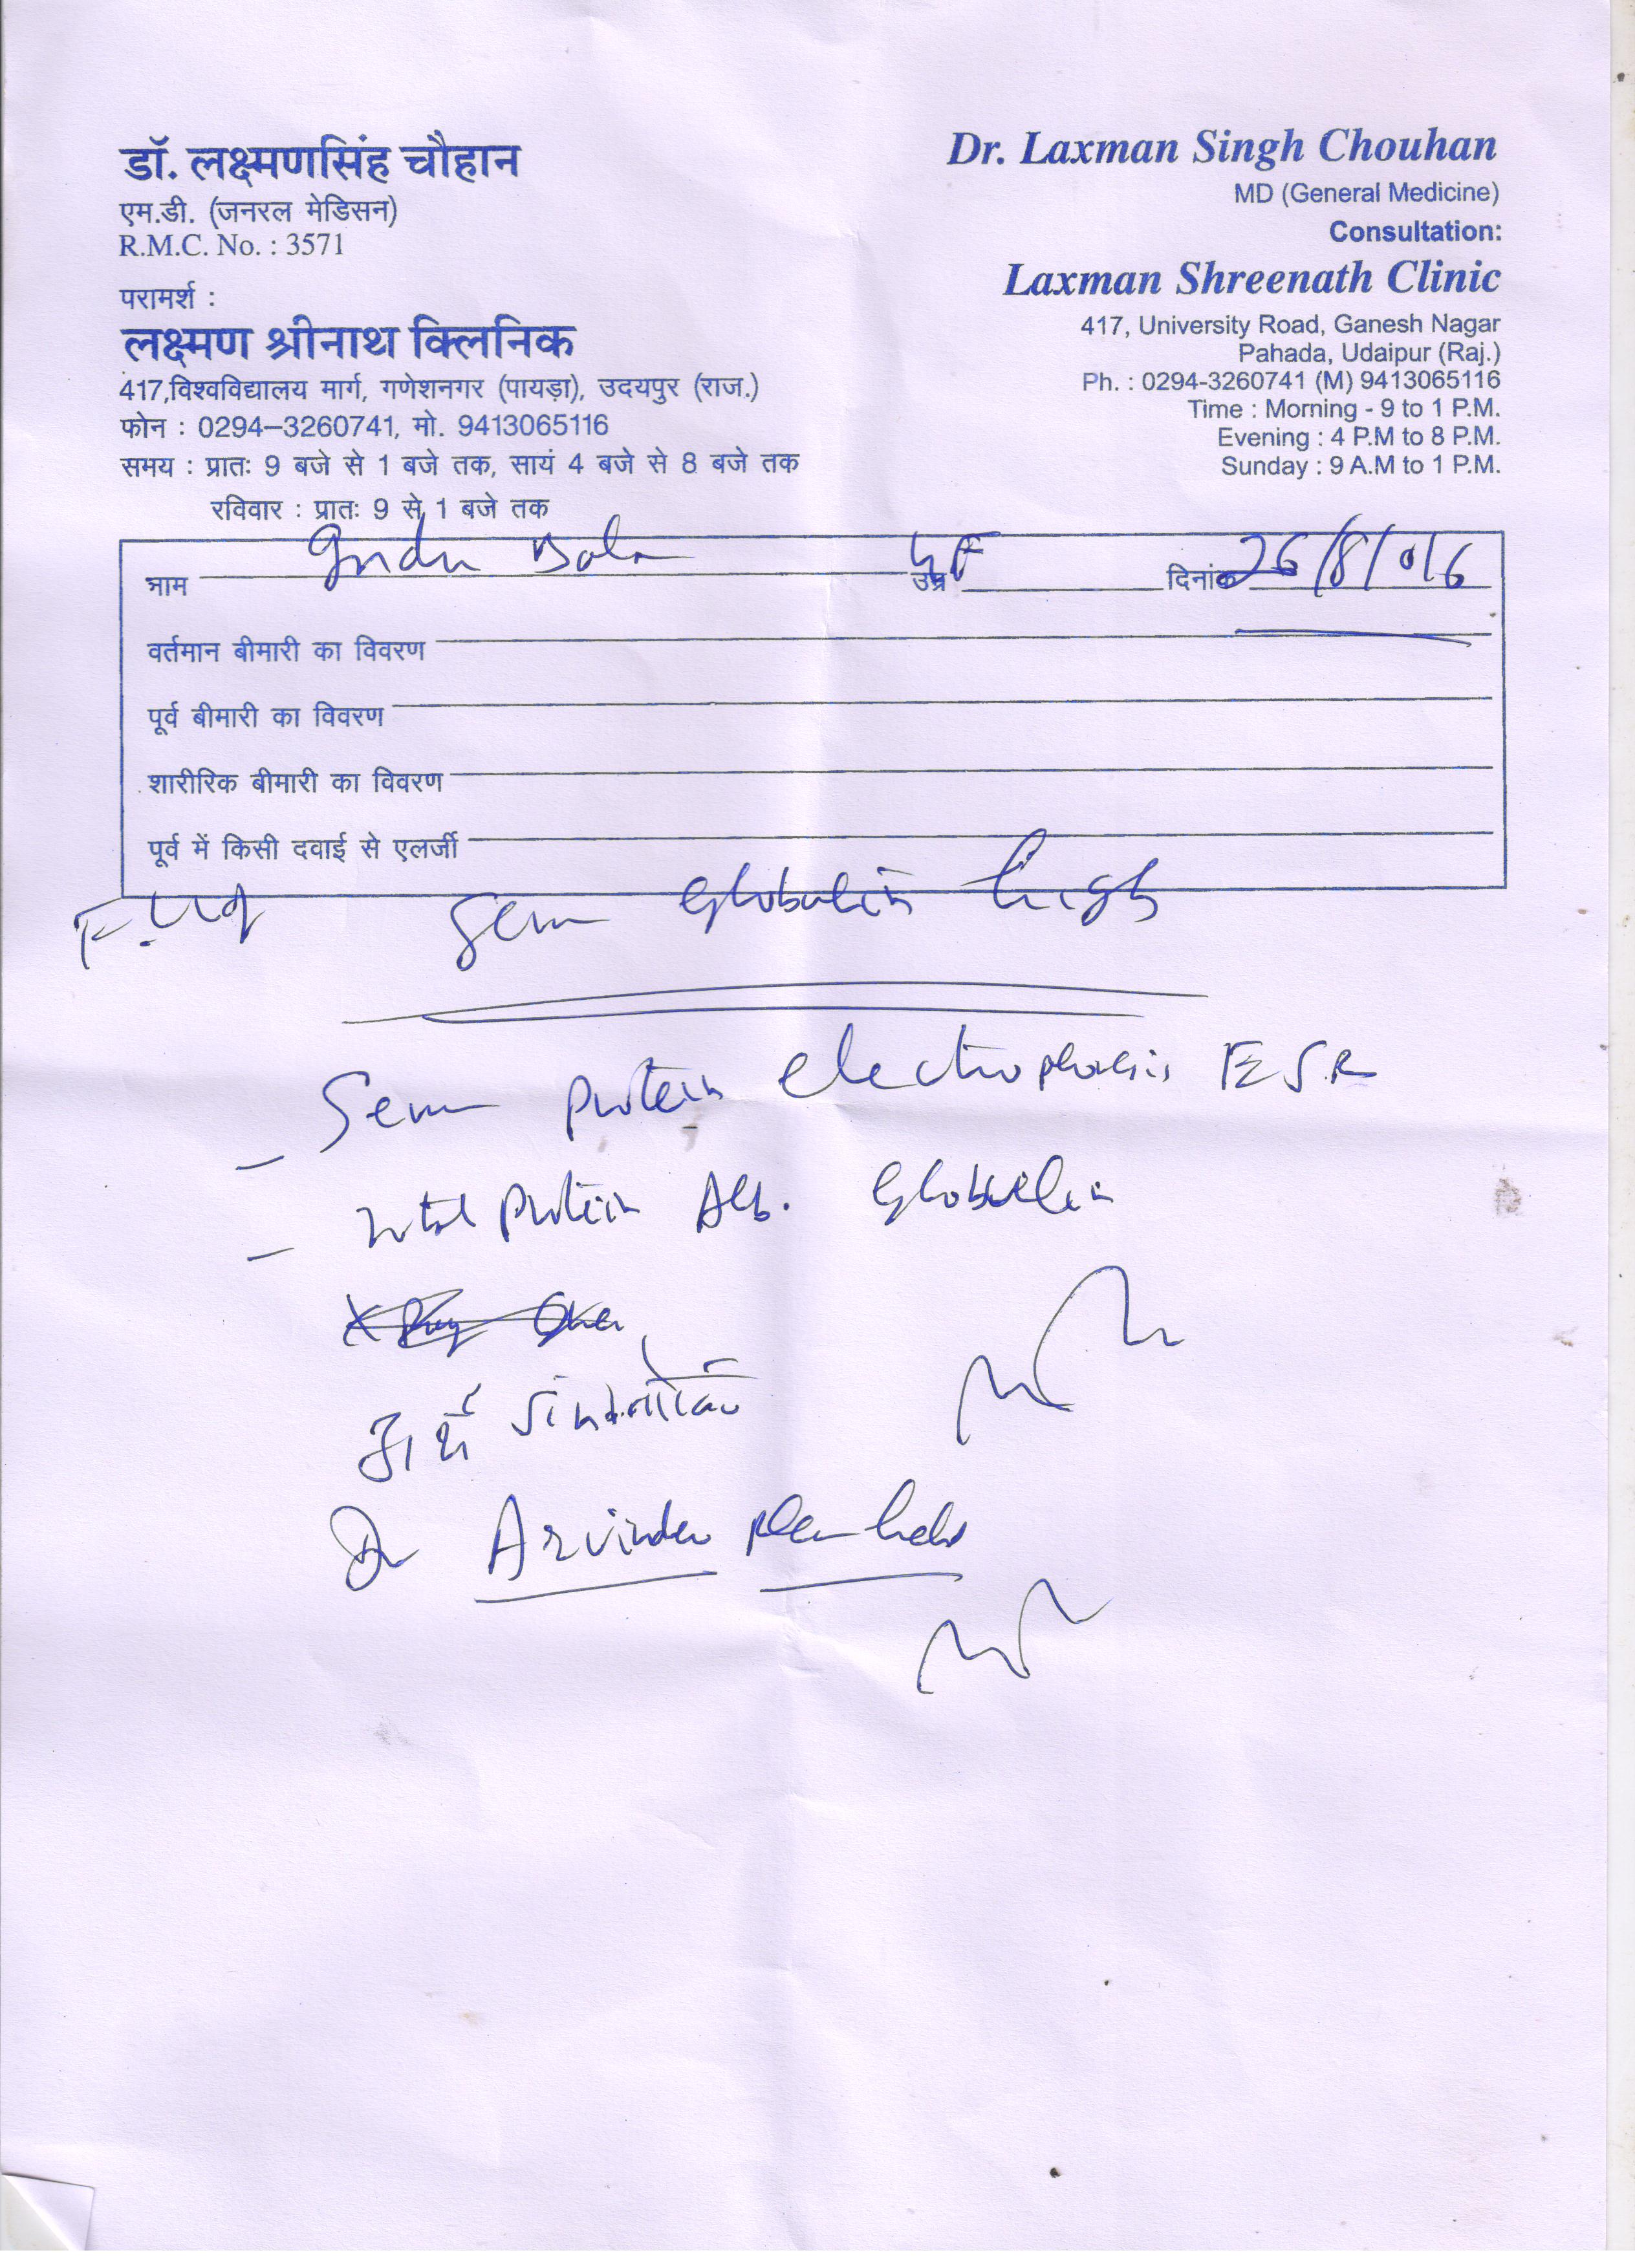 डॉ. लक्ष्मणसिंह चौहान
एम.डी. (जनरल मेडिसन)
R.M.C. No. : 3571
परामर्श :
लक्ष्मण श्रीनाथ क्लिनिक
417,विश्वविद्यालय मार्ग, गणेशनगर (पायड़ा), उदयपुर (राज.)
फोन : 0294–3260741, मो. 9413065116
समय : प्रातः 9 बजे से 1 बजे तक, सायं 4 बजे से 8 बजे तक
रविवार : प्रातः 9 से 1 बजे तक
Dr. Laxman Singh Chouhan
MD (General Medicine)
Consultation:
Laxman Shreenath Clinic
417, University Road, Ganesh Nagar
Pahada, Udaipur (Raj.)
Ph. : 0294-3260741 (M) 9413065116
Time : Morning - 9 to 1 P.M.
Evening : 4 P.M to 8 P.M.
Sunday : 9 A.M to 1 P.M.
नाम Indu Bala उम्र दिनांक 26/8/016
वर्तमान बीमारी का विवरण
पूर्व बीमारी का विवरण
शारीरिक बीमारी का विवरण
पूर्व में किसी दवाई से एलर्जी
Serum globulin high
- Serum protein electrophoresis ESR
- total protein Alb. Globulin
Dr Arvinder